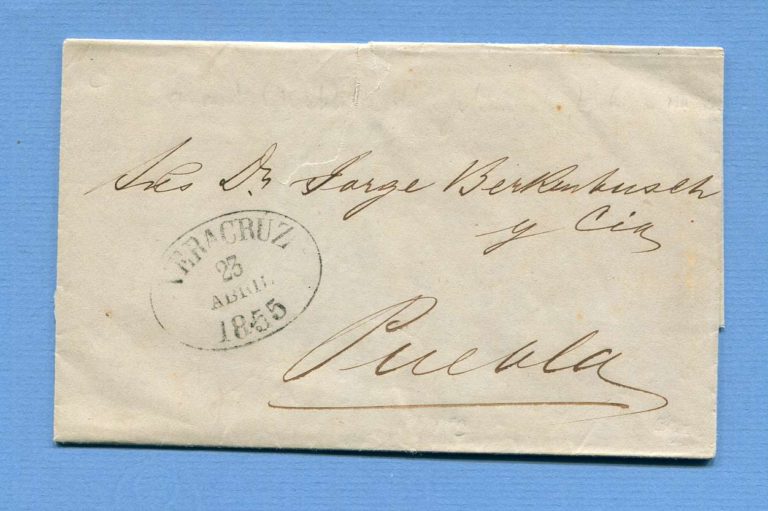 Sres Dn Jorge Berkenbusch
y Cia
VERACRUZ
23
ABRIL
1855
Puebla